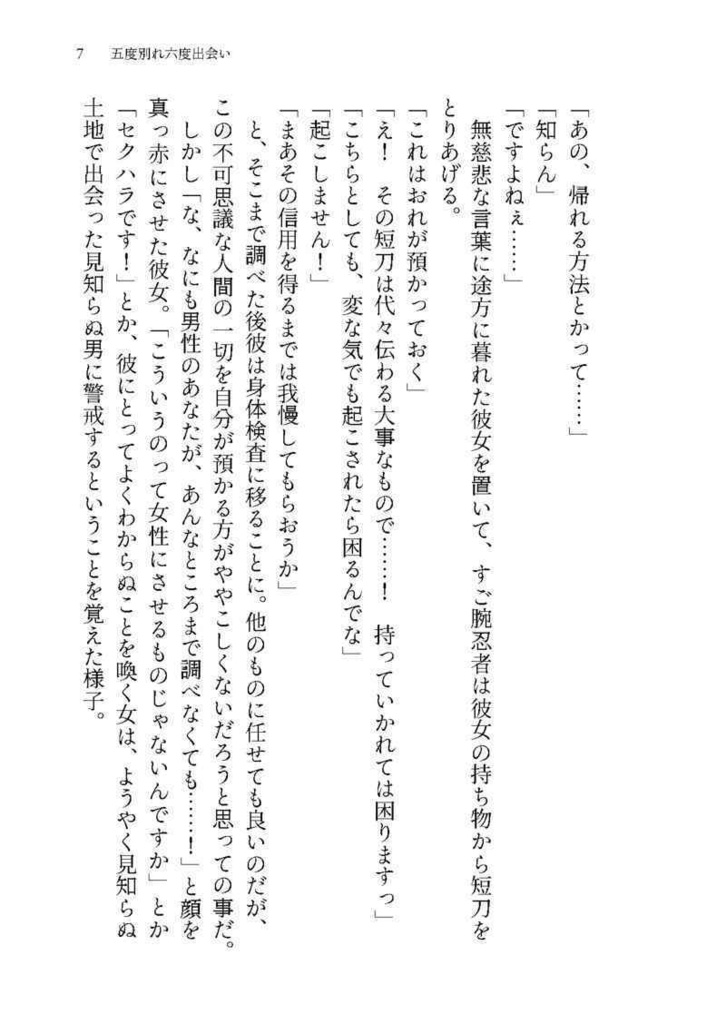 7 五度別れ六度出会い
「あの、帰れる方法とかって……」
「知らん」
「ですよねぇ……」
　無慈悲な言葉に途方に暮れた彼女を置いて、すご腕忍者は彼女の持ち物から短刀を
とりあげる。
「これはおれが預かっておく」
「え！　その短刀は代々伝わる大事なもので……！　持っていかれては困りますっ」
「こちらとしても、変な気でも起こされたら困るんでな」
「起こしません！」
「まあその信用を得るまでは我慢してもらおうか」
　と、そこまで調べた後彼は身体検査に移ることに。他のものに任せても良いのだが、
この不可思議な人間の一切を自分が預かる方がややこしくないだろうと思っての事だ。
　しかし「な、なにも男性のあなたが、あんなところまで調べなくても……！」と顔を
真っ赤にさせた彼女。「こういうのって女性にさせるものじゃないんですか」とか
「セクハラです！」とか、彼にとってよくわからぬことを喚く女は、ようやく見知らぬ
土地で出会った見知らぬ男に警戒するということを覚えた様子。